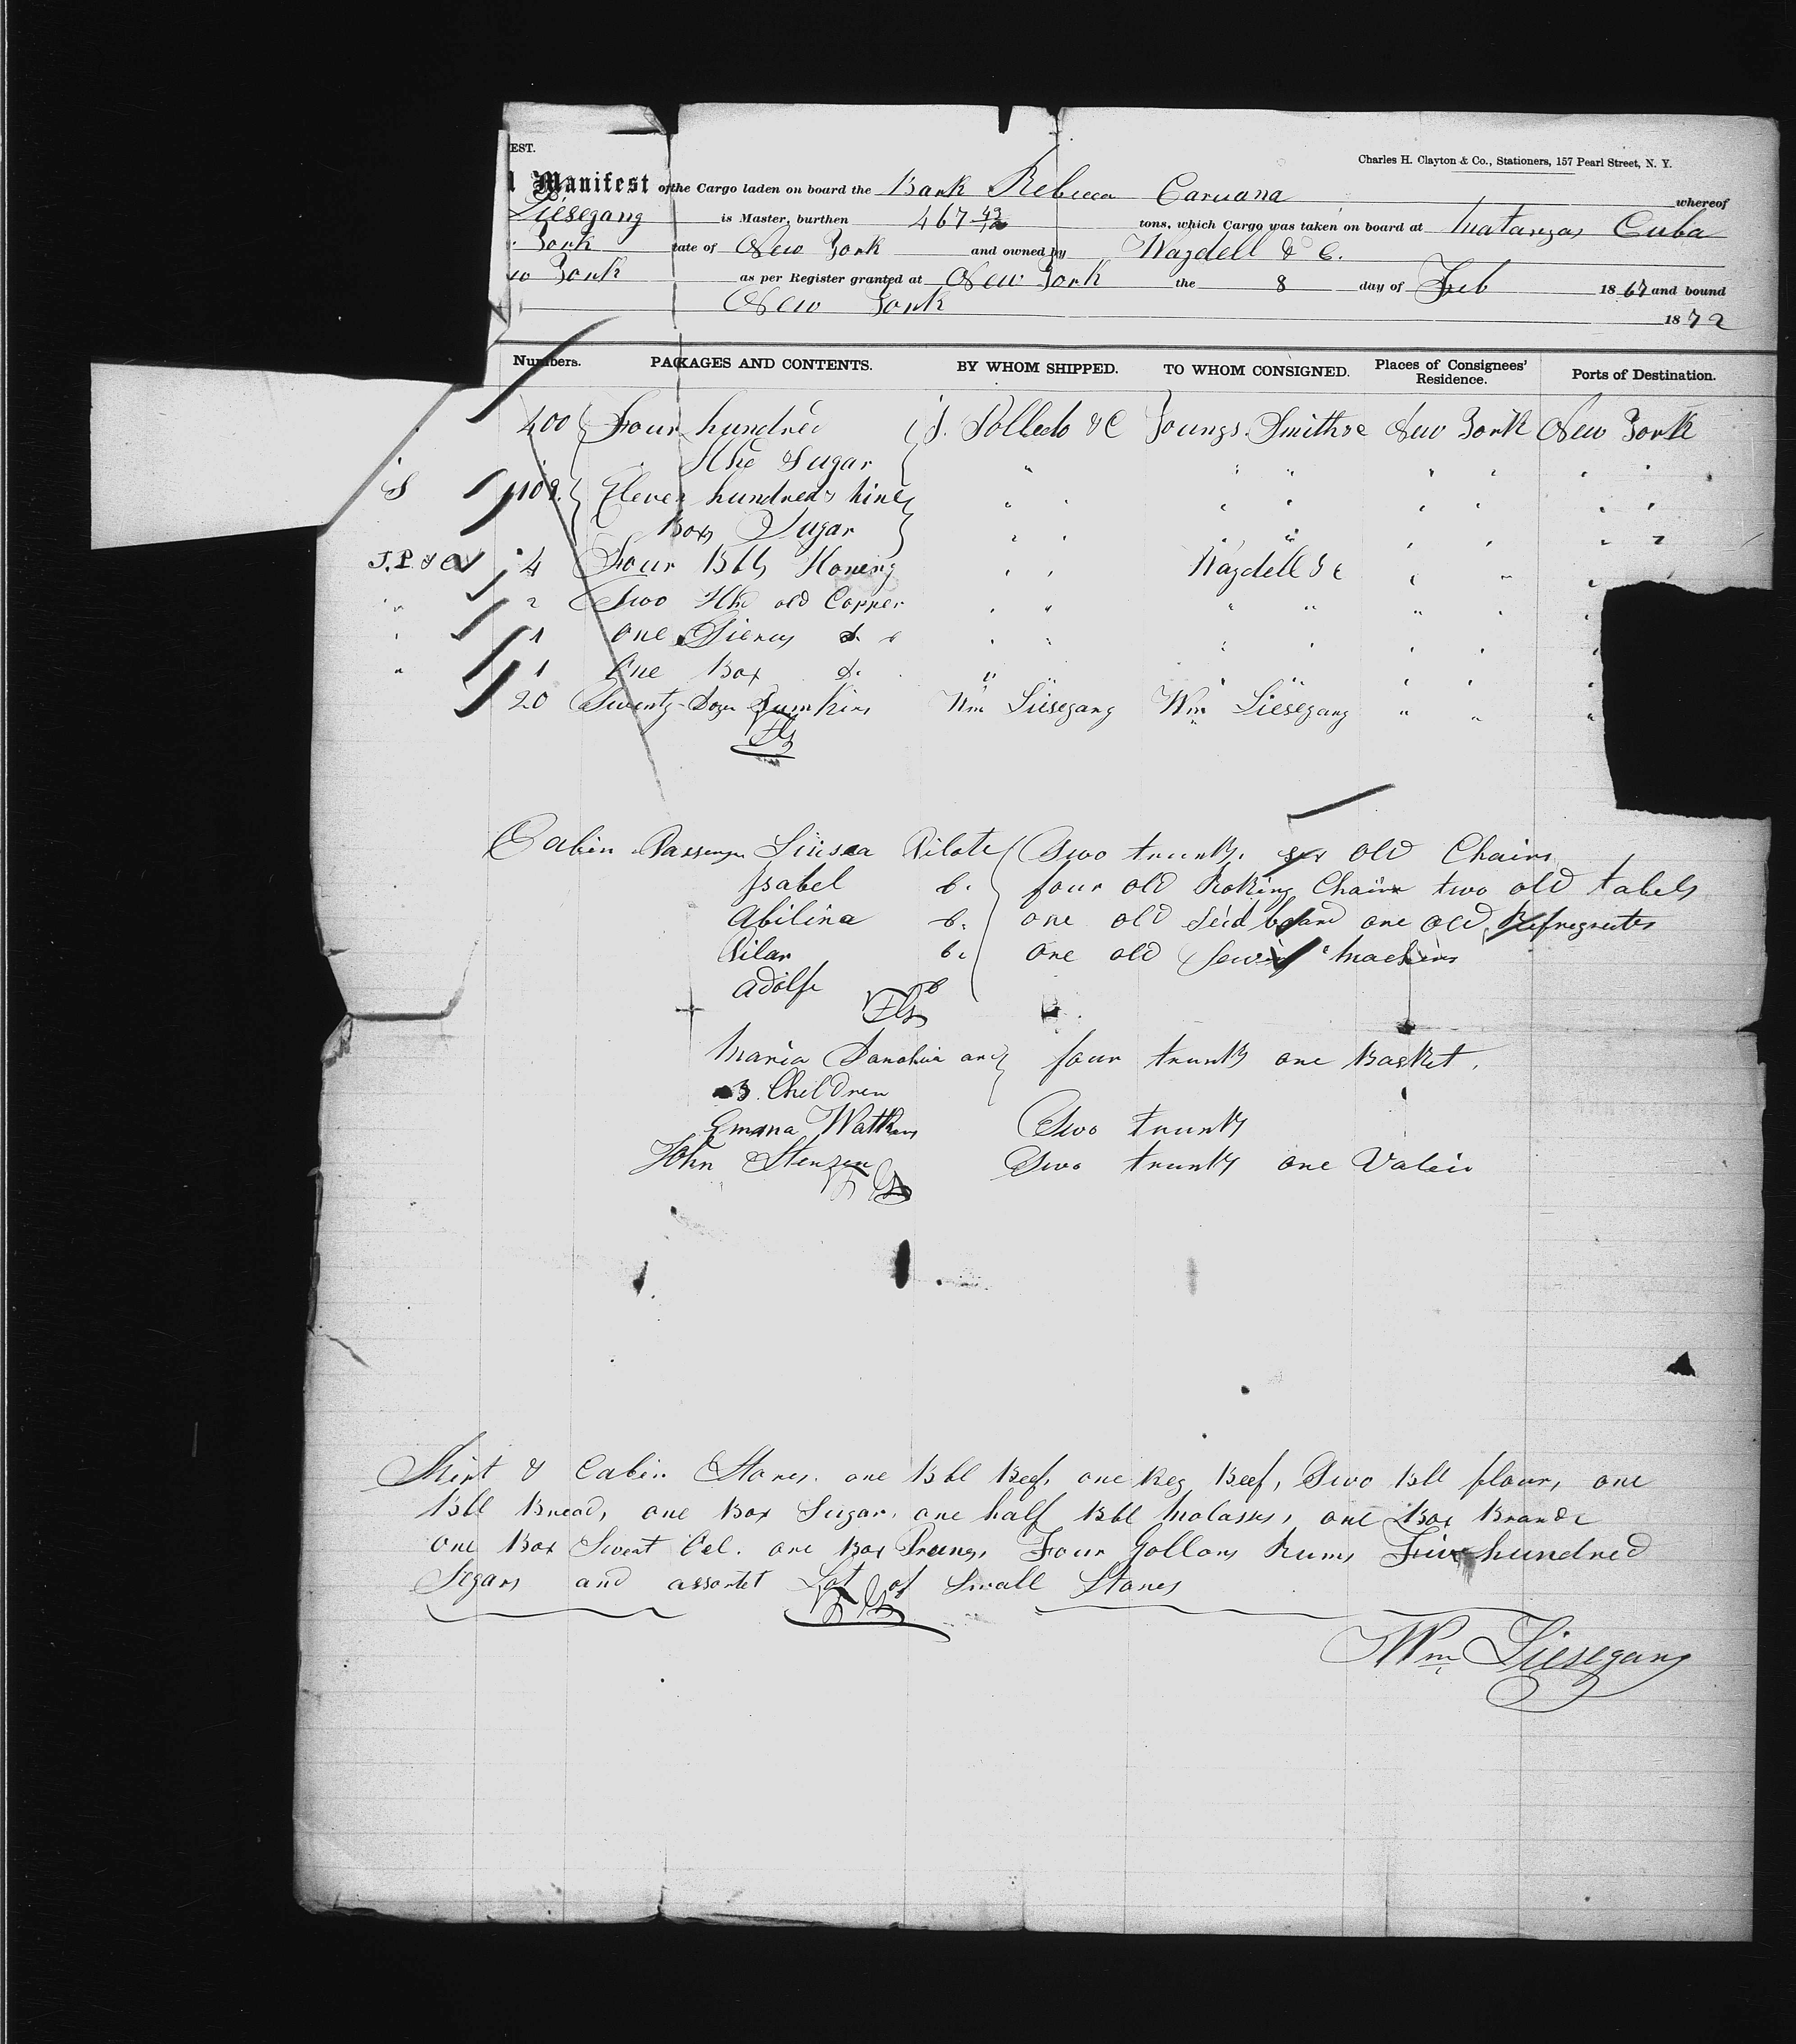 EST.
Charles H. Clayton & Co., Stationers, 157 Pearl Street, N. Y.
l Manifest of the Cargo laden on board the Bark Rebecca Caruana whereof
Liesegang is Master, burthen 467 43/ tons, which Cargo was taken on board at Matanzas Cuba
York tate of New York and owned by Waydell & C.
w York as per Register granted at New York the 8 day of Feb 1867 and bound
New York 1872
Numbers. PACKAGES AND CONTENTS. BY WHOM SHIPPED. TO WHOM CONSIGNED. Places of Consignees' Residence. Ports of Destination.
400 Four hundred J. Polledo & C Youngs Smith & c New York New York
Hhd Sugar " " "
S 1109 Eleven hundred & nine
Boxs Sugar
J. P. & C 4 Four Bbls Honeng Waydell & c
" 2 Two Hhd old Copper
" 1 one Tierces do
" 1 One Box do
20 Twenty Dozen Pumkins Wm Liesegang Wm Liesegang " "
Cabin Passenger Pilote Two trunks six old Chairs
Isabel do four old Roking Chairs two old tabels
Abilina do one old Seid board one old Refregreater
Pilar do one old Sewing Machine
Adolfe do
Maria and four trunks one Basket.
3 Children
Emana Watkins Two trunks
John Stenzen Two trunks one Valeis
& Cabin Stores. one Bbl Beef, one Keg Beef, Two Bbl flour, one
Bbl Bread, one Box Sugar, one half Bbl Molasses, one Box Brande
one Box Sweet Oel. one Box Pruens, Four Gollons Rum, Five hundred
Segars and assortet Lot of Small Stores
Wm Liesegang